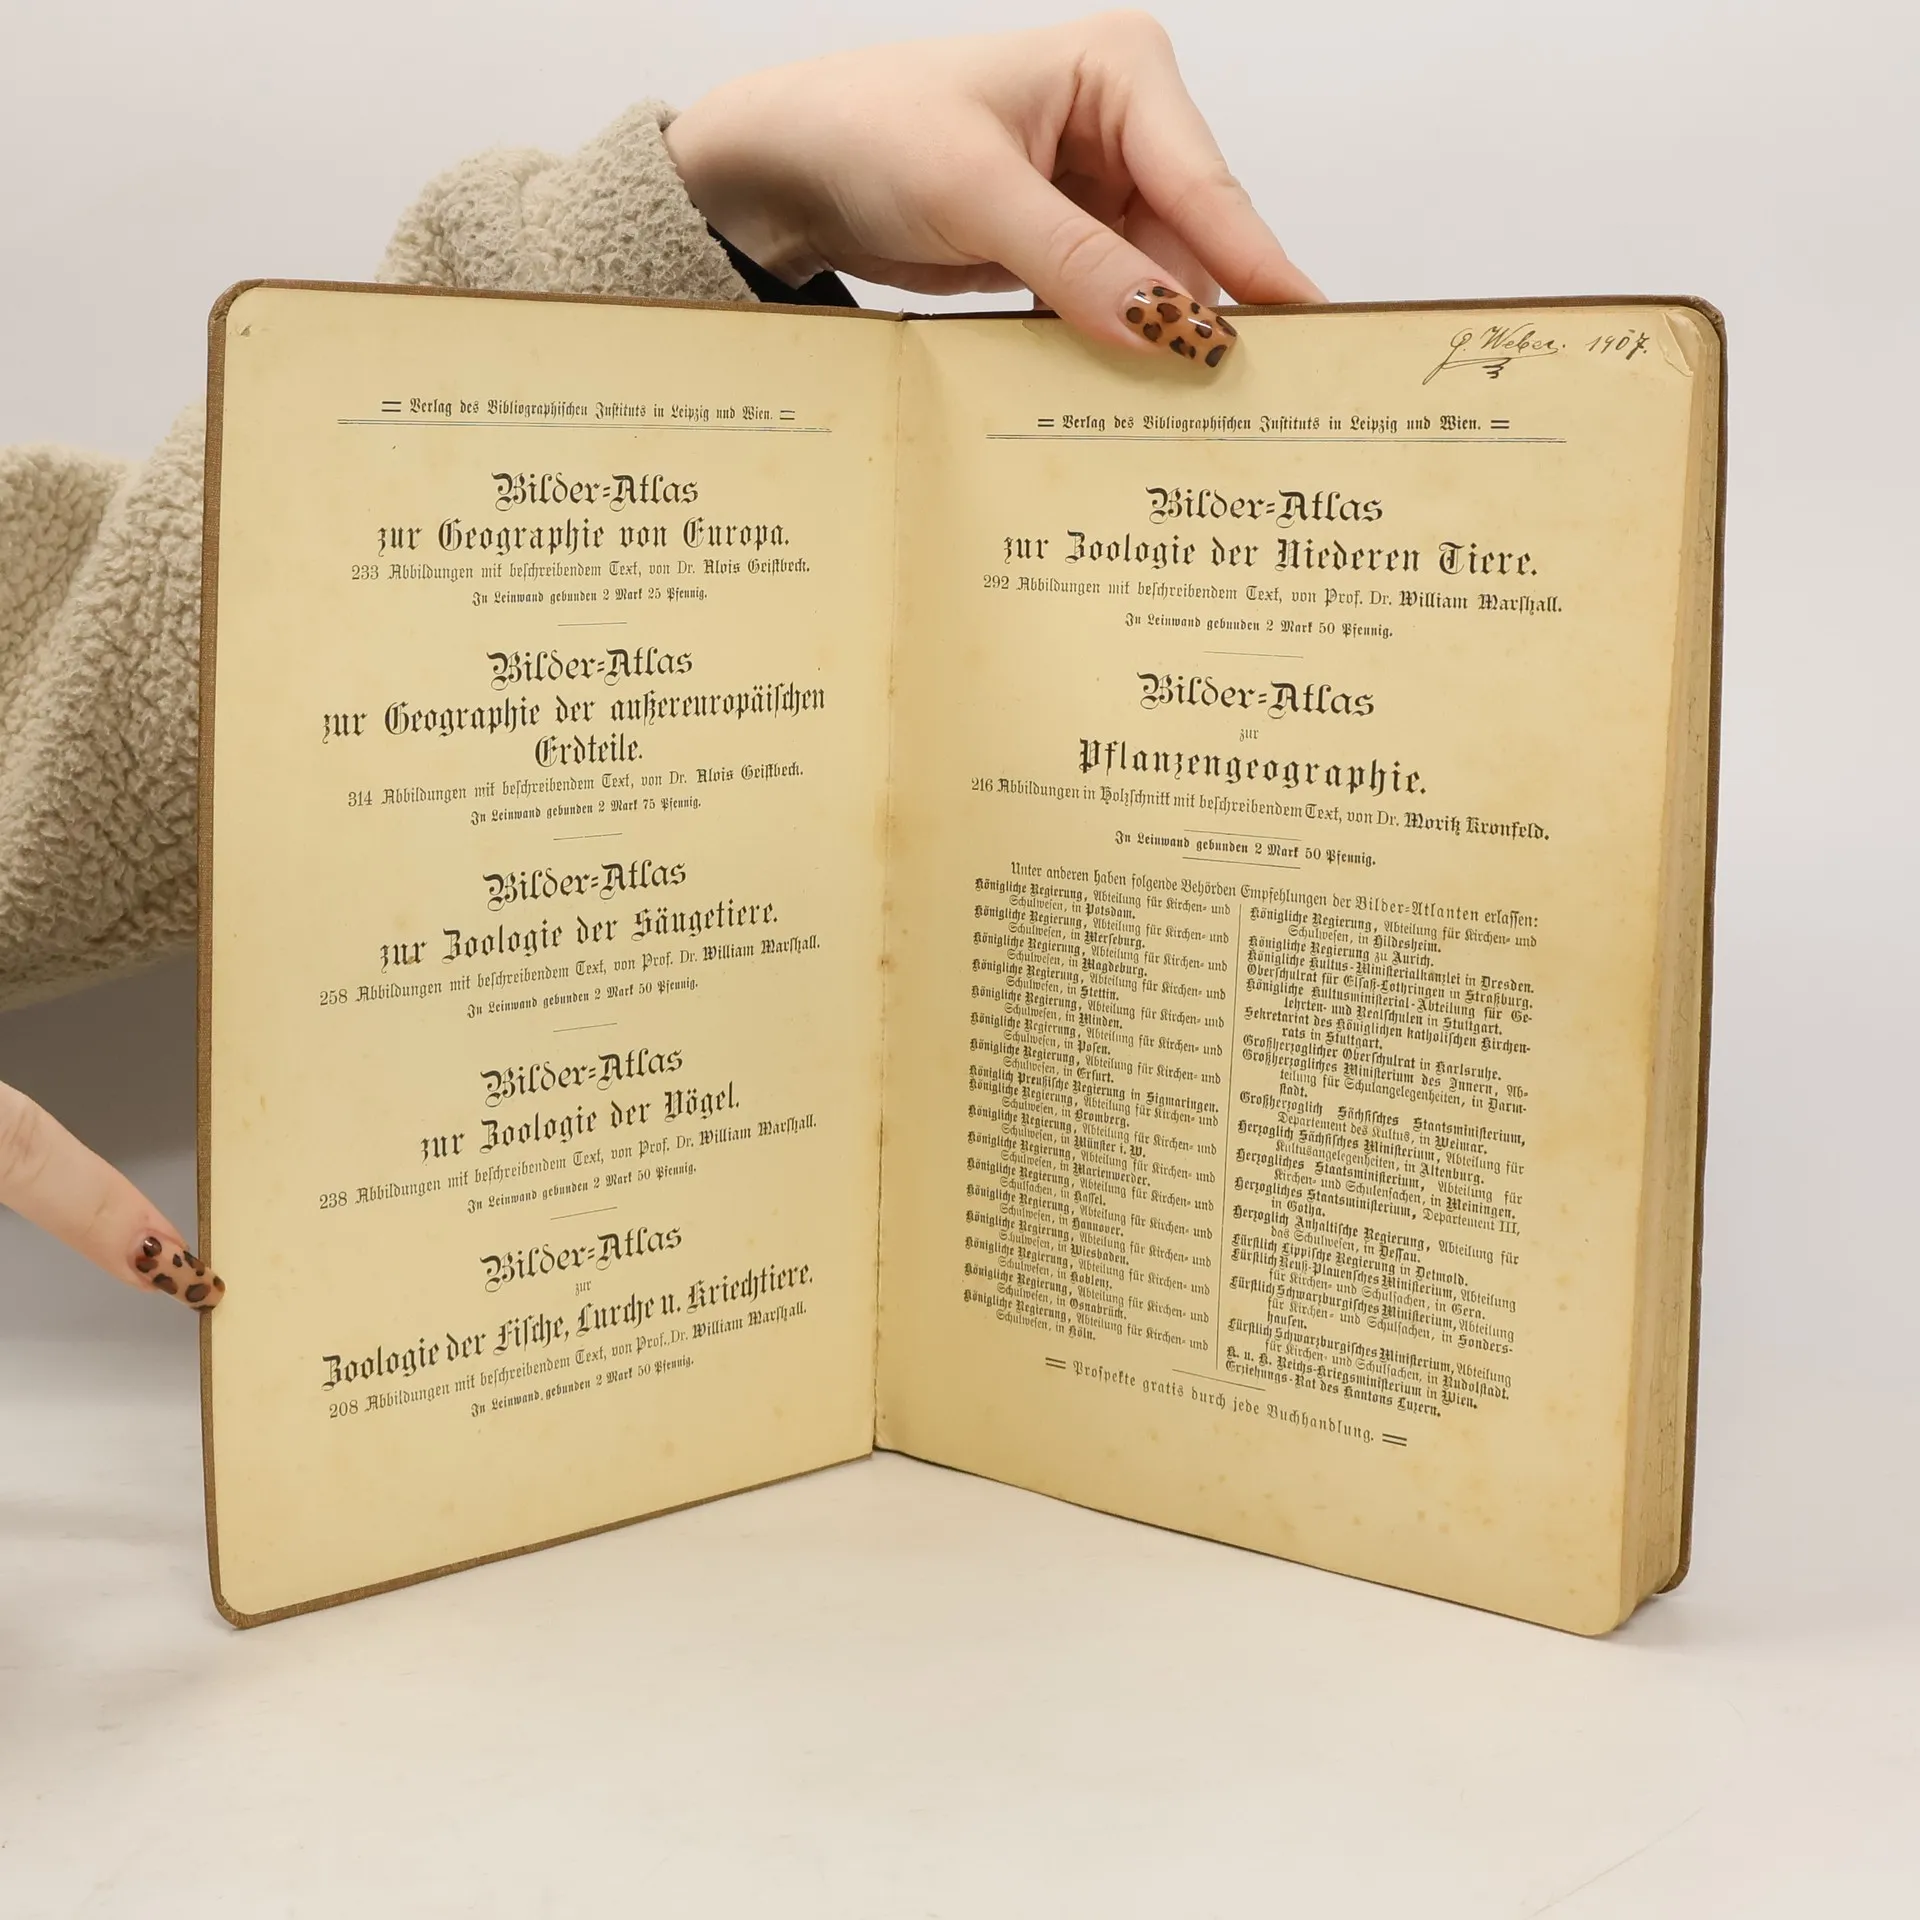 Verlag des Bibliographischen Instituts in Leipzig und Wien.
Bilder-Atlas
zur Geographie von Europa.
233 Abbildungen mit beschreibendem Text, von Dr. Alois Geistbeck.
In Leinwand gebunden 2 Mark 25 Pfennig.
Bilder-Atlas
zur Geographie der außereuropäischen
Erdteile.
314 Abbildungen mit beschreibendem Text, von Dr. Alois Geistbeck.
In Leinwand gebunden 2 Mark 75 Pfennig.
Bilder-Atlas
zur Zoologie der Säugetiere.
258 Abbildungen mit beschreibendem Text, von Prof. Dr. William Marshall.
In Leinwand gebunden 2 Mark 50 Pfennig.
Bilder-Atlas
zur Zoologie der Vögel.
238 Abbildungen mit beschreibendem Text, von Prof. Dr. William Marshall.
In Leinwand gebunden 2 Mark 50 Pfennig.
Bilder-Atlas
zur
Zoologie der Fische, Lurche u. Kriechtiere.
208 Abbildungen mit beschreibendem Text, von Prof. Dr. William Marshall.
In Leinwand gebunden 2 Mark 50 Pfennig.
G. Weber. 1907.
Verlag des Bibliographischen Instituts in Leipzig und Wien.
Bilder-Atlas
zur Zoologie der Niederen Tiere.
292 Abbildungen mit beschreibendem Text, von Prof. Dr. William Marshall.
In Leinwand gebunden 2 Mark 50 Pfennig.
Bilder-Atlas
zur
Pflanzengeographie.
216 Abbildungen in Holzschnitt mit beschreibendem Text, von Dr. Moritz Kronfeld.
In Leinwand gebunden 2 Mark 50 Pfennig.
Unter anderen haben folgende Behörden Empfehlungen der Bilder-Atlanten erlassen:
Königliche Regierung, Abteilung für Kirchen- und
Schulwesen, in Potsdam.
Königliche Regierung, Abteilung für Kirchen- und
Schulwesen, in Merseburg.
Königliche Regierung, Abteilung für Kirchen- und
Schulwesen, in Magdeburg.
Königliche Regierung, Abteilung für Kirchen- und
Schulwesen, in Stettin.
Königliche Regierung, Abteilung für Kirchen- und
Schulwesen, in Minden.
Königliche Regierung, Abteilung für Kirchen- und
Schulwesen, in Posen.
Königliche Regierung, Abteilung für Kirchen- und
Schulwesen, in Erfurt.
Königlich Preußische Regierung in Sigmaringen.
Königliche Regierung, Abteilung für Kirchen- und
Schulwesen, in Bromberg.
Königliche Regierung, Abteilung für Kirchen- und
Schulwesen, in Münster i. W.
Königliche Regierung, Abteilung für Kirchen- und
Schulwesen, in Marienwerder.
Königliche Regierung, Abteilung für Kirchen- und
Schulsachen, in Kassel.
Königliche Regierung, Abteilung für Kirchen- und
Schulwesen, in Hannover.
Königliche Regierung, Abteilung für Kirchen- und
Schulwesen, in Wiesbaden.
Königliche Regierung, Abteilung für Kirchen- und
Schulwesen, in Koblenz.
Königliche Regierung, Abteilung für Kirchen- und
Schulwesen, in Osnabrück.
Königliche Regierung, Abteilung für Kirchen- und
Schulwesen, in Köln.
Königliche Regierung, Abteilung für Kirchen- und
Schulwesen, in Hildesheim.
Königliche Regierung zu Aurich.
Königliche Kultus-Ministerialkanzlei in Dresden.
Oberschulrat für Elsaß-Lothringen in Straßburg.
Königliche Kultusministerial-Abteilung für Ge-
lehrten- und Realschulen in Stuttgart.
Sekretariat des Königlichen katholischen Kirchen-
rats in Stuttgart.
Großherzoglicher Oberschulrat in Karlsruhe.
Großherzogliches Ministerium des Innern, Ab-
teilung für Schulangelegenheiten, in Darm-
stadt.
Großherzoglich Sächsisches Staatsministerium,
Departement des Kultus, in Weimar.
Herzoglich Sächsisches Ministerium, Abteilung für
Kultusangelegenheiten, in Altenburg.
Herzogliches Staatsministerium, Abteilung für
Kirchen- und Schulensachen, in Meiningen.
Herzogliches Staatsministerium, Departement III,
in Gotha.
Herzoglich Anhaltische Regierung, Abteilung für
das Schulwesen, in Dessau.
Fürstlich Lippische Regierung in Detmold.
Fürstlich Reuß-Plauensches Ministerium, Abteilung
für Kirchen- und Schulsachen, in Gera.
Fürstlich Schwarzburgisches Ministerium, Abteilung
für Kirchen- und Schulsachen, in Sonders-
hausen.
Fürstlich Schwarzburgisches Ministerium, Abteilung
für Kirchen- und Schulsachen, in Rudolstadt.
K. u. K. Reichs-Kriegsministerium in Wien.
Erziehungs-Rat des Kantons Luzern.
Prospekte gratis durch jede Buchhandlung.